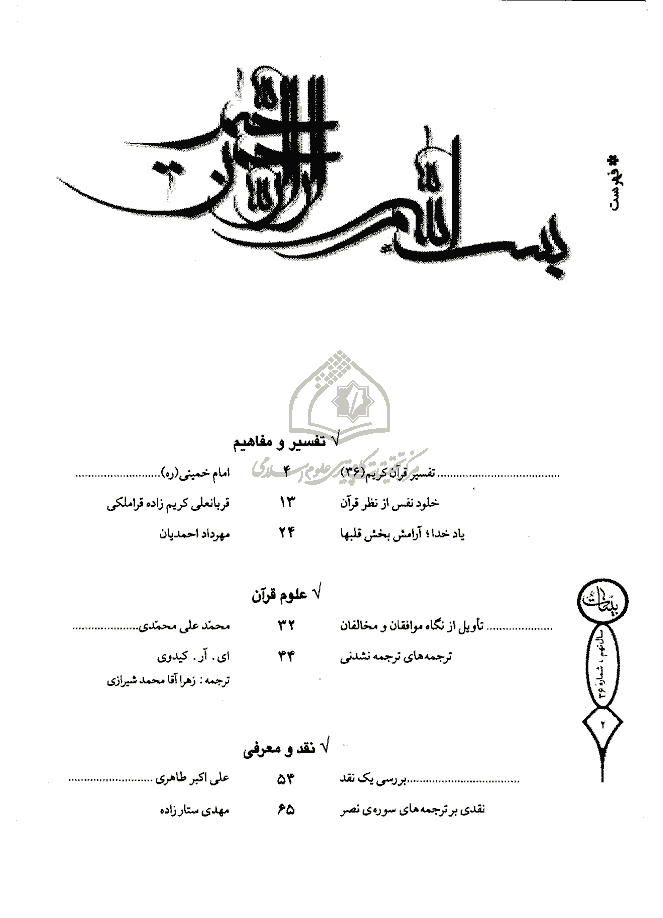 بسم الله الرحمن الرحیم
* فهرست
√ تفسیر و مفاهیم
تفسیر قرآن کریم(۳۶) ۴ امام خمینی(ره)
خلود نفس از نظر قرآن ۱۳ قربانعلی کریم زاده قراملکی
یاد خدا؛ آرامش بخش قلبها ۲۴ مهرداد احمدیان
√ علوم قرآن
تأویل از نگاه موافقان و مخالفان ۳۲ محمّد علی محمّدی
ترجمه‌های ترجمه نشدنی ۴۴ ای. آر. کیدوی
ترجمه: زهرا آقا محمد شیرازی
√ نقد و معرفی
بررسی یک نقد ۵۴ علی اکبر طاهری
نقدی بر ترجمه‌های سوره‌ی نصر ۶۵ مهدی ستار زاده
بینات
سال نهم، شماره ۳۶
۲
مرکز تحقیقات کامپیوتری علوم اسلامی